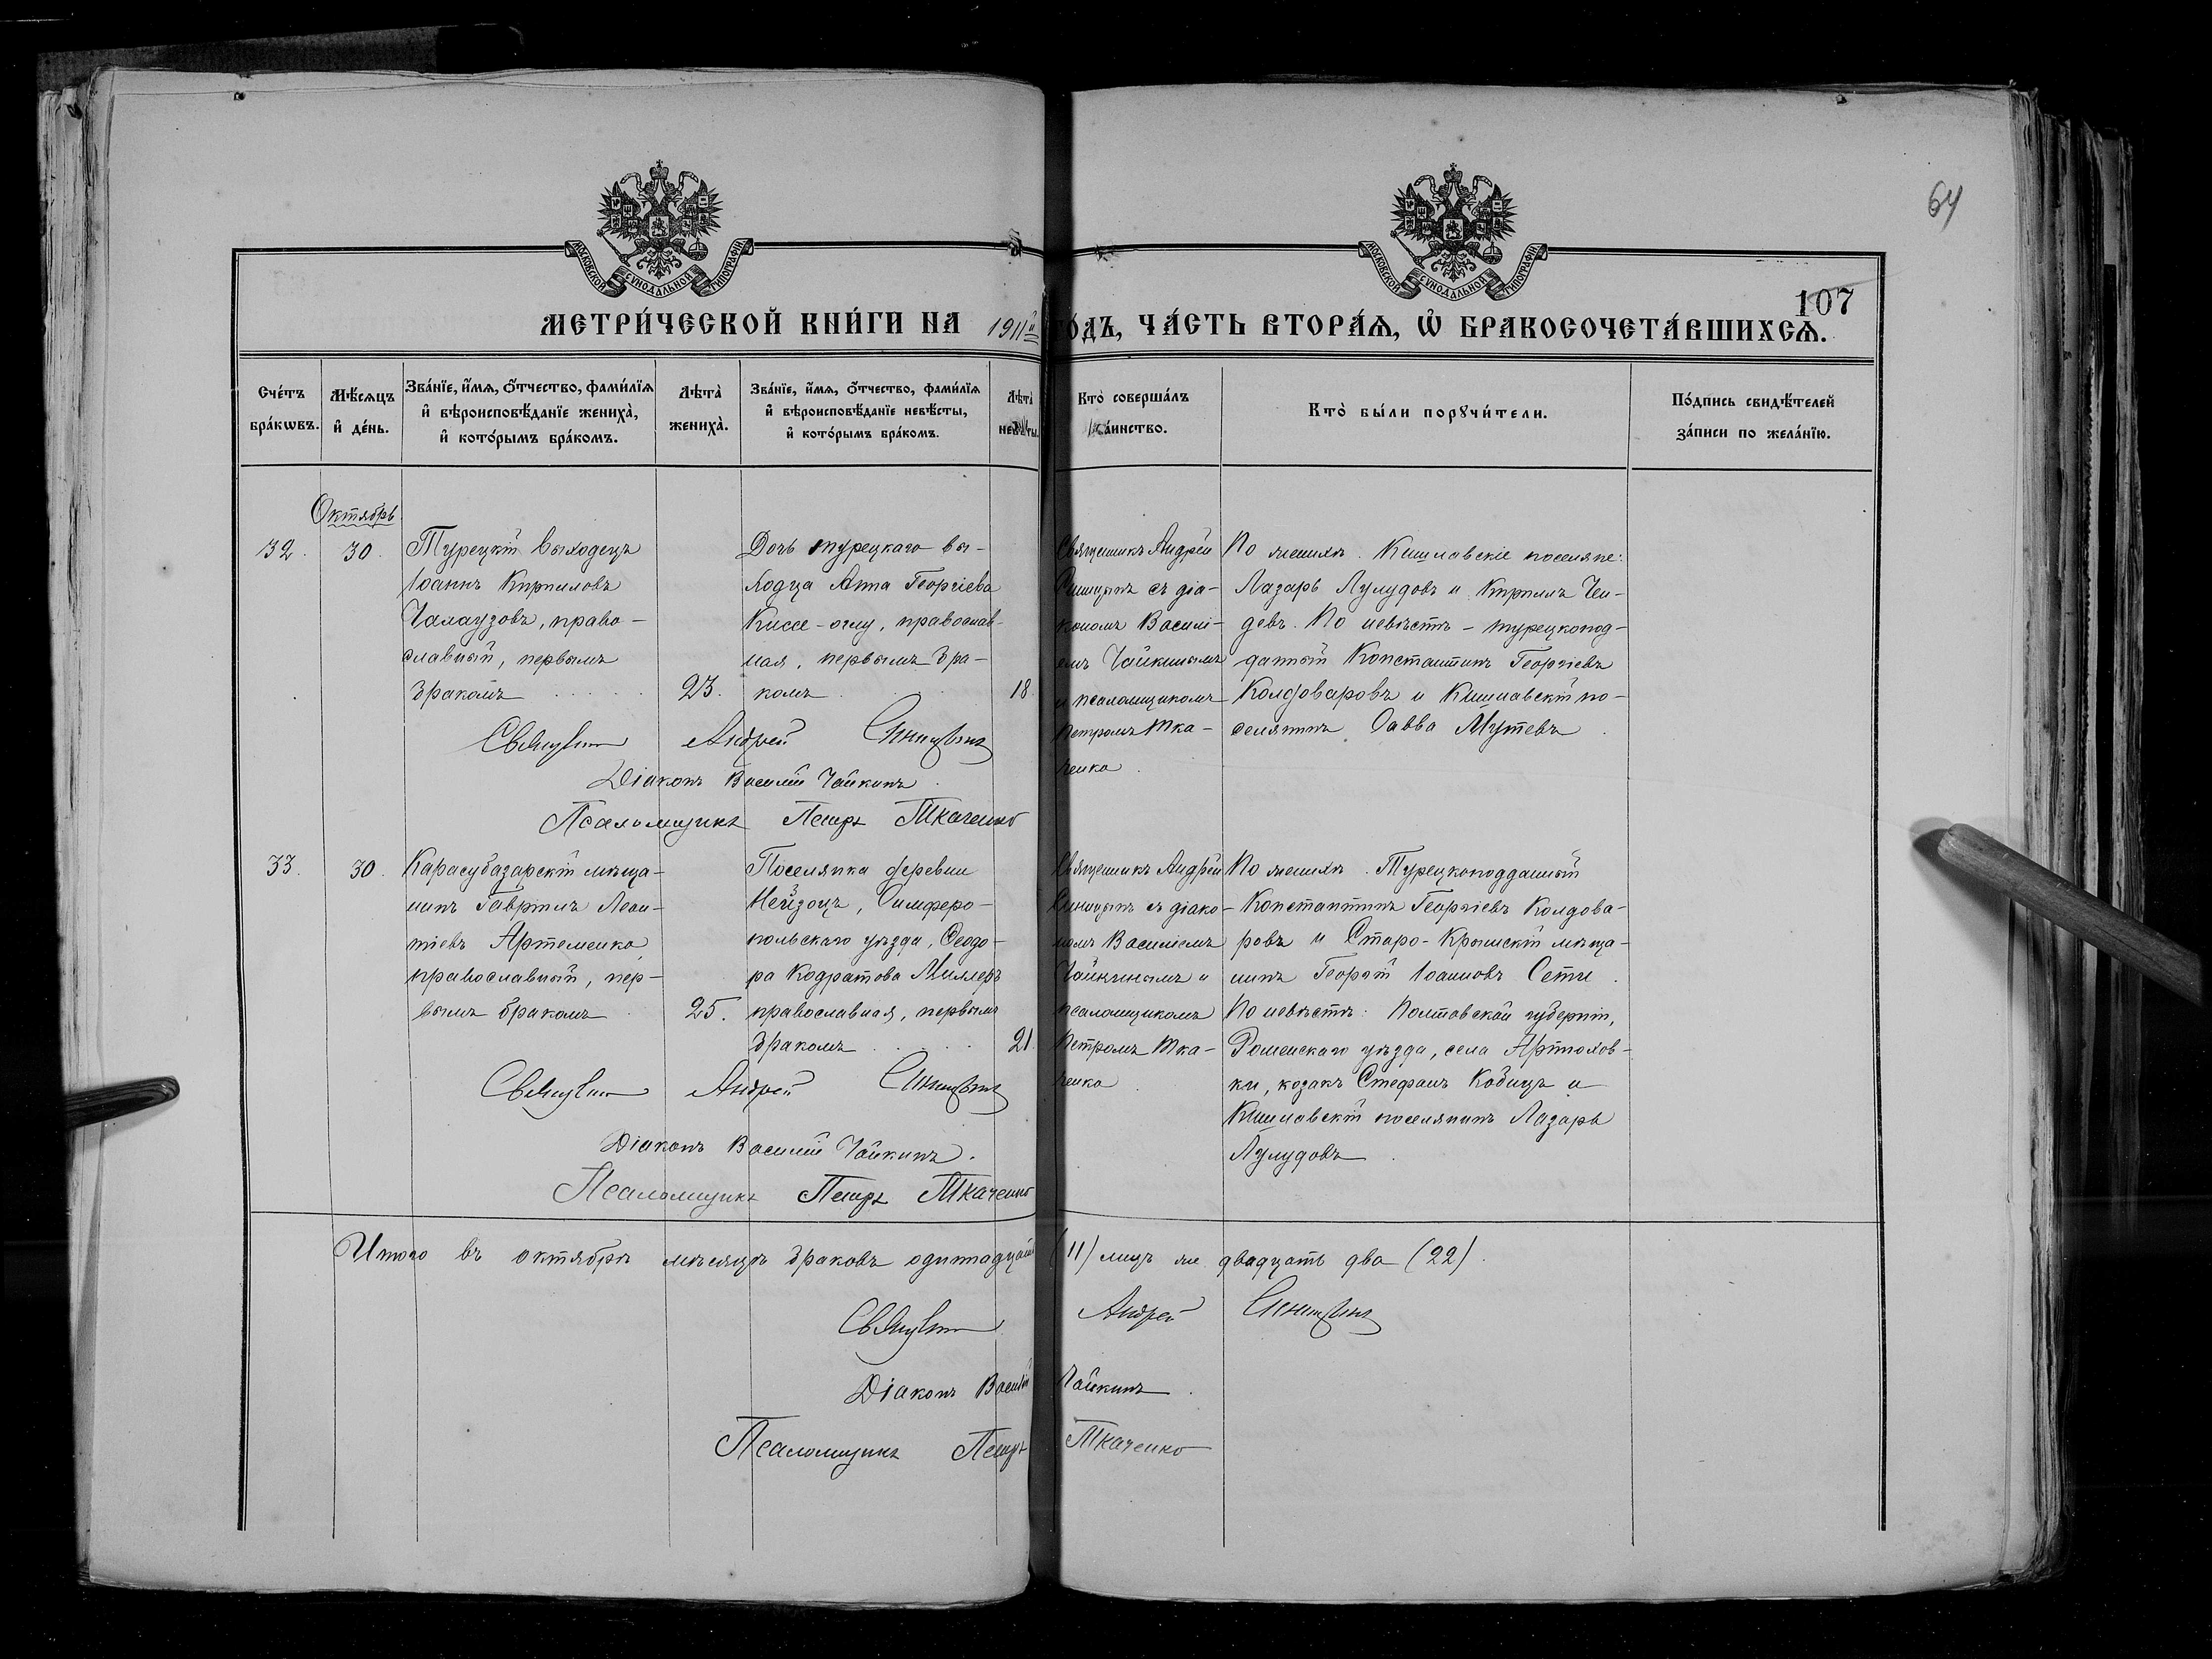 64
107
МОСКОВСКОЙ СѴНОДАЛЬНОЙ ТИПОГРАФІИ
МОСКОВСКОЙ СѴНОДАЛЬНОЙ ТИПОГРАФІИ
МЕТРИ́ЧЕСКОЙ КНИ́ГИ НА 1911й ГО́ДЪ, ЧА́СТЬ ВТОРА́Ѧ, Ѡ҆ БРАКОСОЧЕТА́ВШИХСѦ.
Сче́тъ бра́кѡвъ.
Мѣ́сѧцъ и҆ де́нь.
Зва́нїе, и҆́мѧ, ѻ҆́тчество, фами́лїѧ и҆ вѣроисповѣ́данїе жениха̀, и҆ кото́рымъ бра́комъ.
Лѣта̀ жениха̀.
Зва́нїе, и҆́мѧ, ѻ҆́тчество, фами́лїѧ и҆ вѣроисповѣ́данїе невѣ́сты, и҆ кото́рымъ бра́комъ.
Лѣта̀ невѣ́сты.
Кто̀ соверша́лъ та́инство.
Кто̀ бы́ли порꙋчи́тели.
По́дпись свидѣ́телей за́писи по жела́нїю.
Октябрь
32.
30.
Турецкій выходецъ
Іоаннъ Кирилловъ
Чалаузовъ, право-
славный, первымъ
бракомъ
23.
Дочь турецкаго вы-
ходца Анна Георгіева
Киссе-оглу, православ-
ная, первымъ бра-
комъ
18.
Священникъ Андрей
Синицынъ съ діа-
кономъ Василі-
емъ Чайкинымъ
и псаломщикомъ
Петромъ Тка-
ченко.
По женихѣ. Кишлавскіе поселяне:
Лазарь Лулудовъ и Кириллъ Чен-
девъ. По невѣстѣ - турецкопод-
данный Константинъ Георгіевъ
Колдоваровъ и Кишлавскій по-
селянинъ Савва Мутевъ.
Священникъ Андрей Синицынъ
Діаконъ Василій Чайкинъ.
Псаломщикъ Петръ Ткаченко
33.
30.
Карасубазарскій мѣща-
нинъ Гавріилъ Леон-
тіевъ Артеменко,
православный, пер-
вымъ бракомъ
25.
Поселянка деревни
Нейзоцъ, Симферо-
польскаго уѣзда, Ѳеодо-
ра Кодратова Миллеръ
православная, первымъ
бракомъ
21.
Священникъ Андрей
Синицынъ съ діако-
номъ Василіемъ
Чайкинымъ и
псаломщикомъ
Петромъ Тка-
ченко.
По женихѣ. Турецкоподданный
Константинъ Георгіевъ Колдова-
ровъ и Старо-Крымскій мѣща-
нинъ Георгій Іоанновъ Сети.
По невѣстѣ: Полтавской губерніи,
Роменскаго уѣзда, села Артполов-
ки, козакъ Стефанъ Кобицъ и
Кишлавскій поселянинъ Лазарь
Лулудовъ.
Священникъ Андрей Синицынъ
Діаконъ Василій Чайкинъ.
Псаломщикъ Петръ Ткаченко
Итого въ октябрѣ мѣсяцѣ браковъ одиннадцать (11) лицъ же двадцать два (22).
Священникъ Андрей Синицынъ
Діаконъ Василій Чайкинъ.
Псаломщикъ Петръ Ткаченко